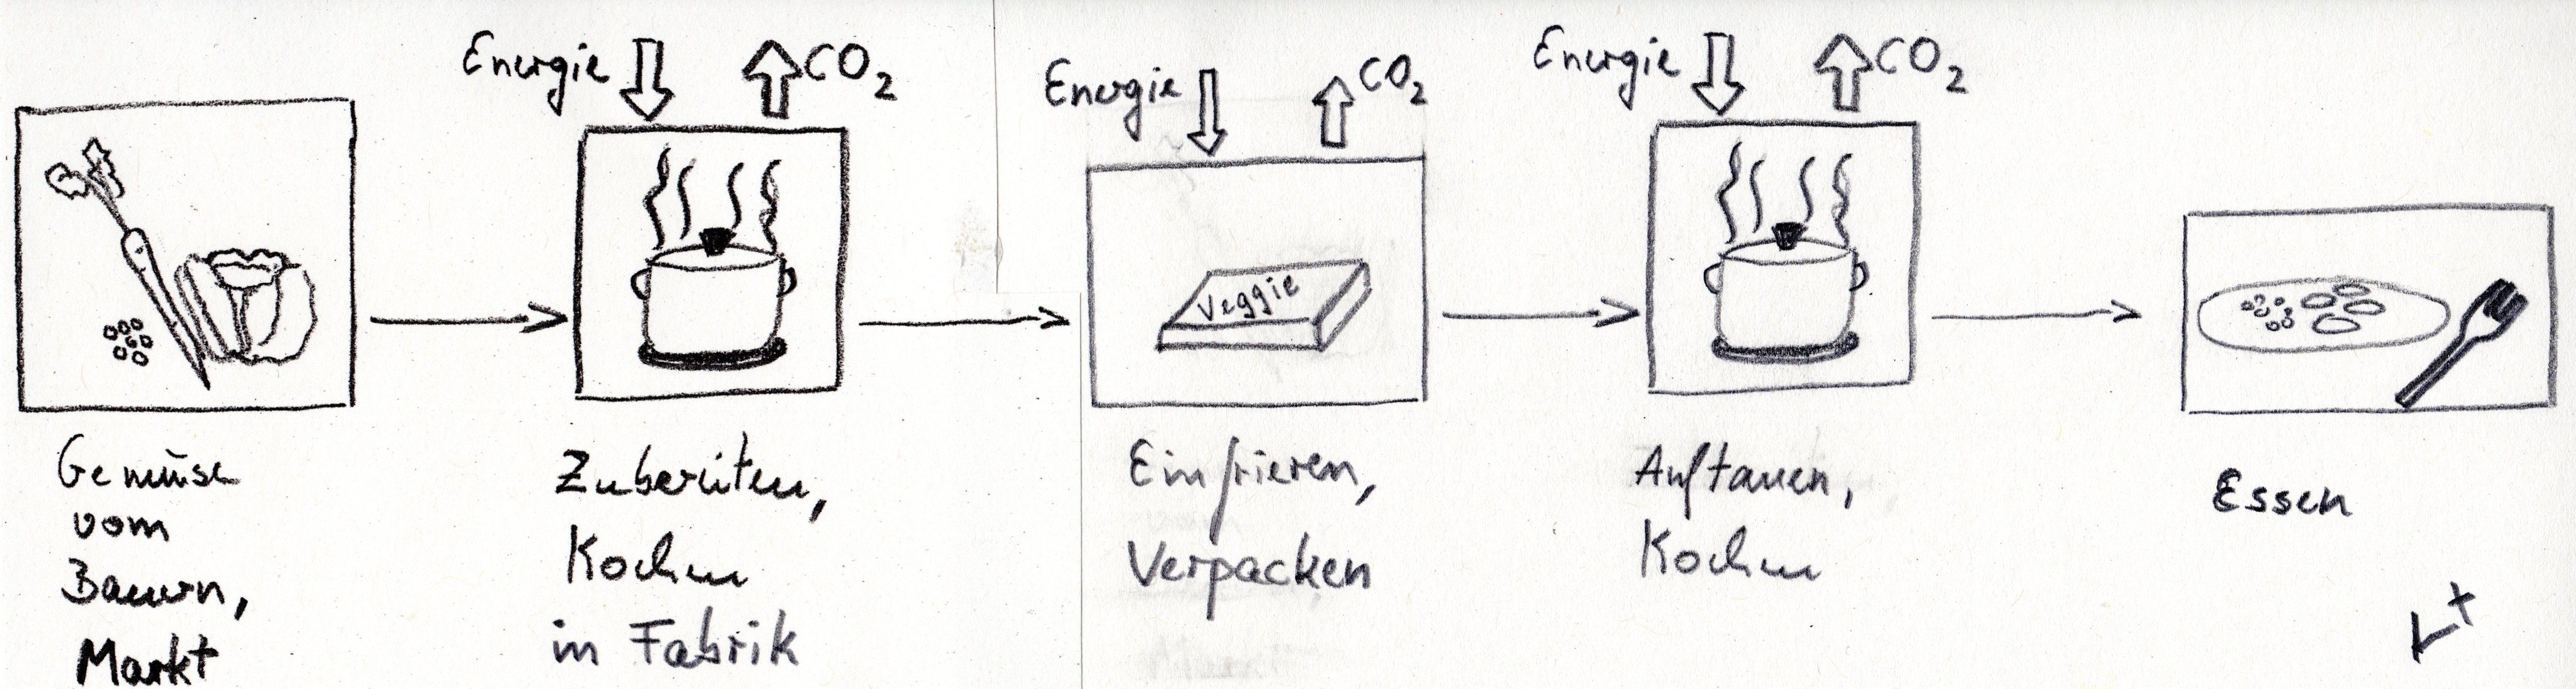 Energie CO2
Energie CO2
Energie CO2
Veggie
Gemüse
vom
Bauern,
Markt
Zubereiten,
Kochen
in Fabrik
Einfrieren,
Verpacken
Auftauen,
Kochen
Essen